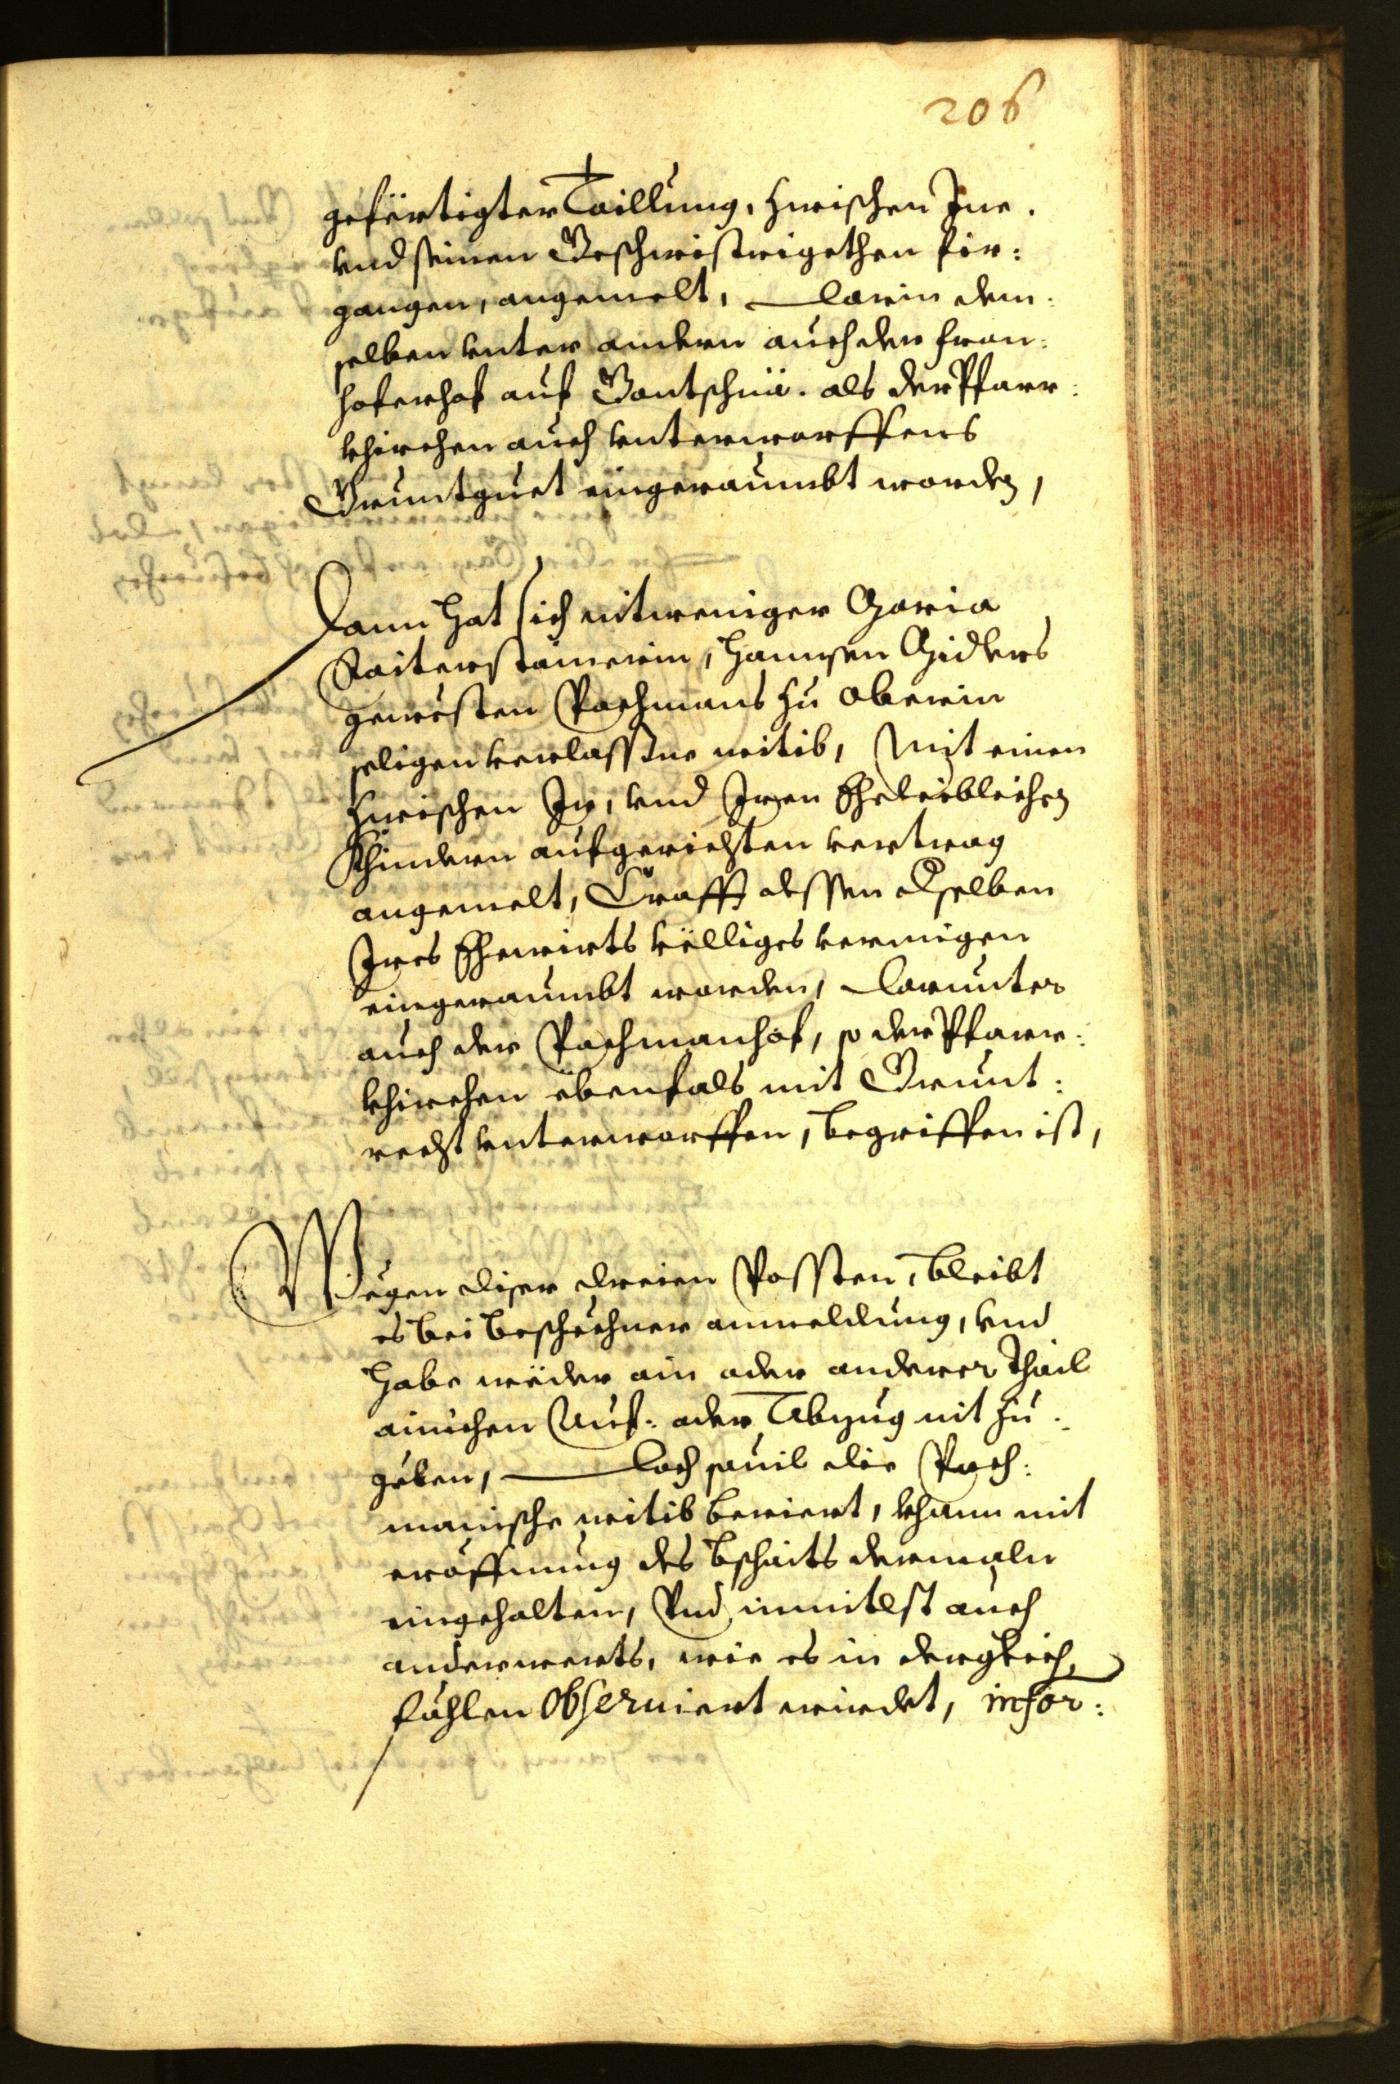 206
gefërtigter Taillung, zwischen Ime.
vnd seinen Geschwistrigethen für:
gangen, angemelt, darin dem:
selben vnter andern auch der Fron:
hoferhof auf Gontschnä. als der Pfarr:
khirchen auch vnterworffens
Gruntguet eingeraumbt worden,
Dann hat sich nitweniger Maria
Raiterstainerin, Hannsen Mids
gewësten Pachmans zu Oberin
seligen verlassne witib, Mit einen
zwischen Ir, vnd Iren Eheleiblichen
Khindern aufgerichten vertrag
angemelt, Crafft dessen derselben
Ires Ehewirts vëlliges vermigen
eingeraumbt worden, Darunter
auch der Pachmanhof, so der Pfarr:
khirchen ebenfals mit Grunt:
recht vnterworffen, begriffen ist,
Wegen diser dreien Possten, bleibt
es bei beschechner anmeldung, vnd
habe wëder ain oder anderer Thail
ainichen Auf: oder Abzug nit zu:
gëben, doch souil die Pach:
manische witib beriert, khann mit
eröffnung des bschaits dermaln
eingehalten, Vnd inmitelst auch
anderwerts, wie es in dergleich
fählen Obseruiert wirdet, infor: